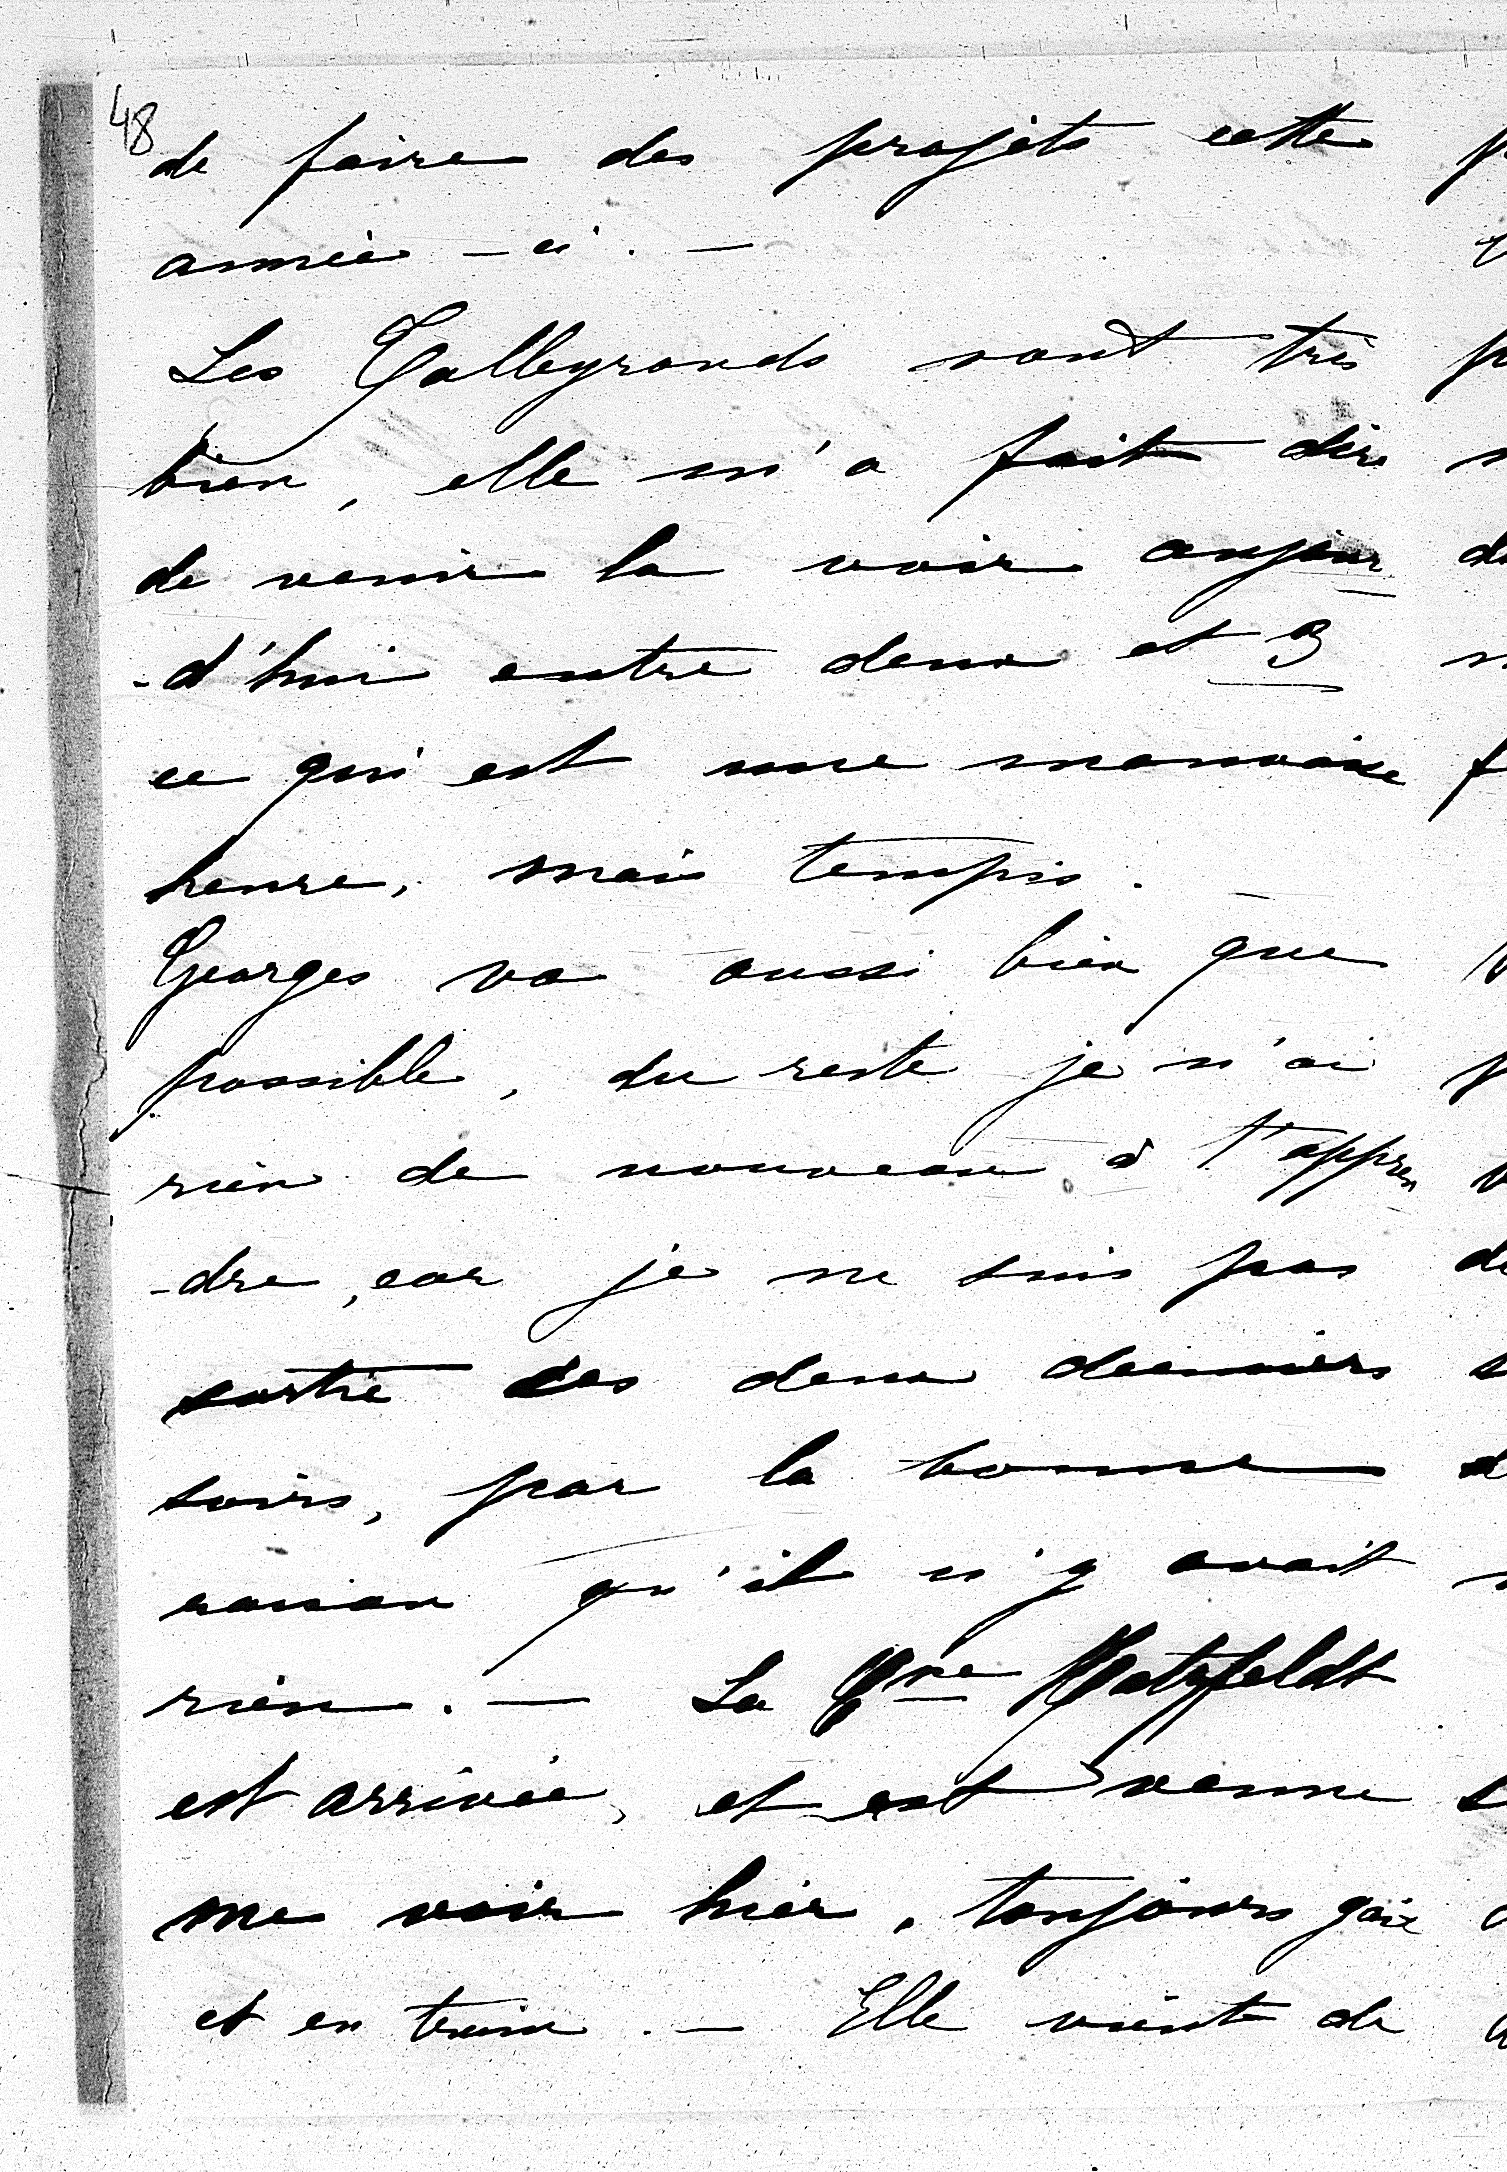 48
de faire des projets cette
année-ci. —
Les Talleyrands vont très
bien, elle m'a fait dire
de venir la voir aujour
-d'hui entre deux et 3
ce qui est une mauvaise
heure, mais tempis. —
Georges va aussi bien que
possible, du reste je n'ai
rien de nouveau à t'appren
-dre, car je ne suis pas
sortie ces deux derniers
soirs, par la bonne
raison qu'il n'y avait
rien. — La Psse Hatzfeldt
est arrivée, et est venue
me voir hier, toujours gaie
et en train. — Elle vient de